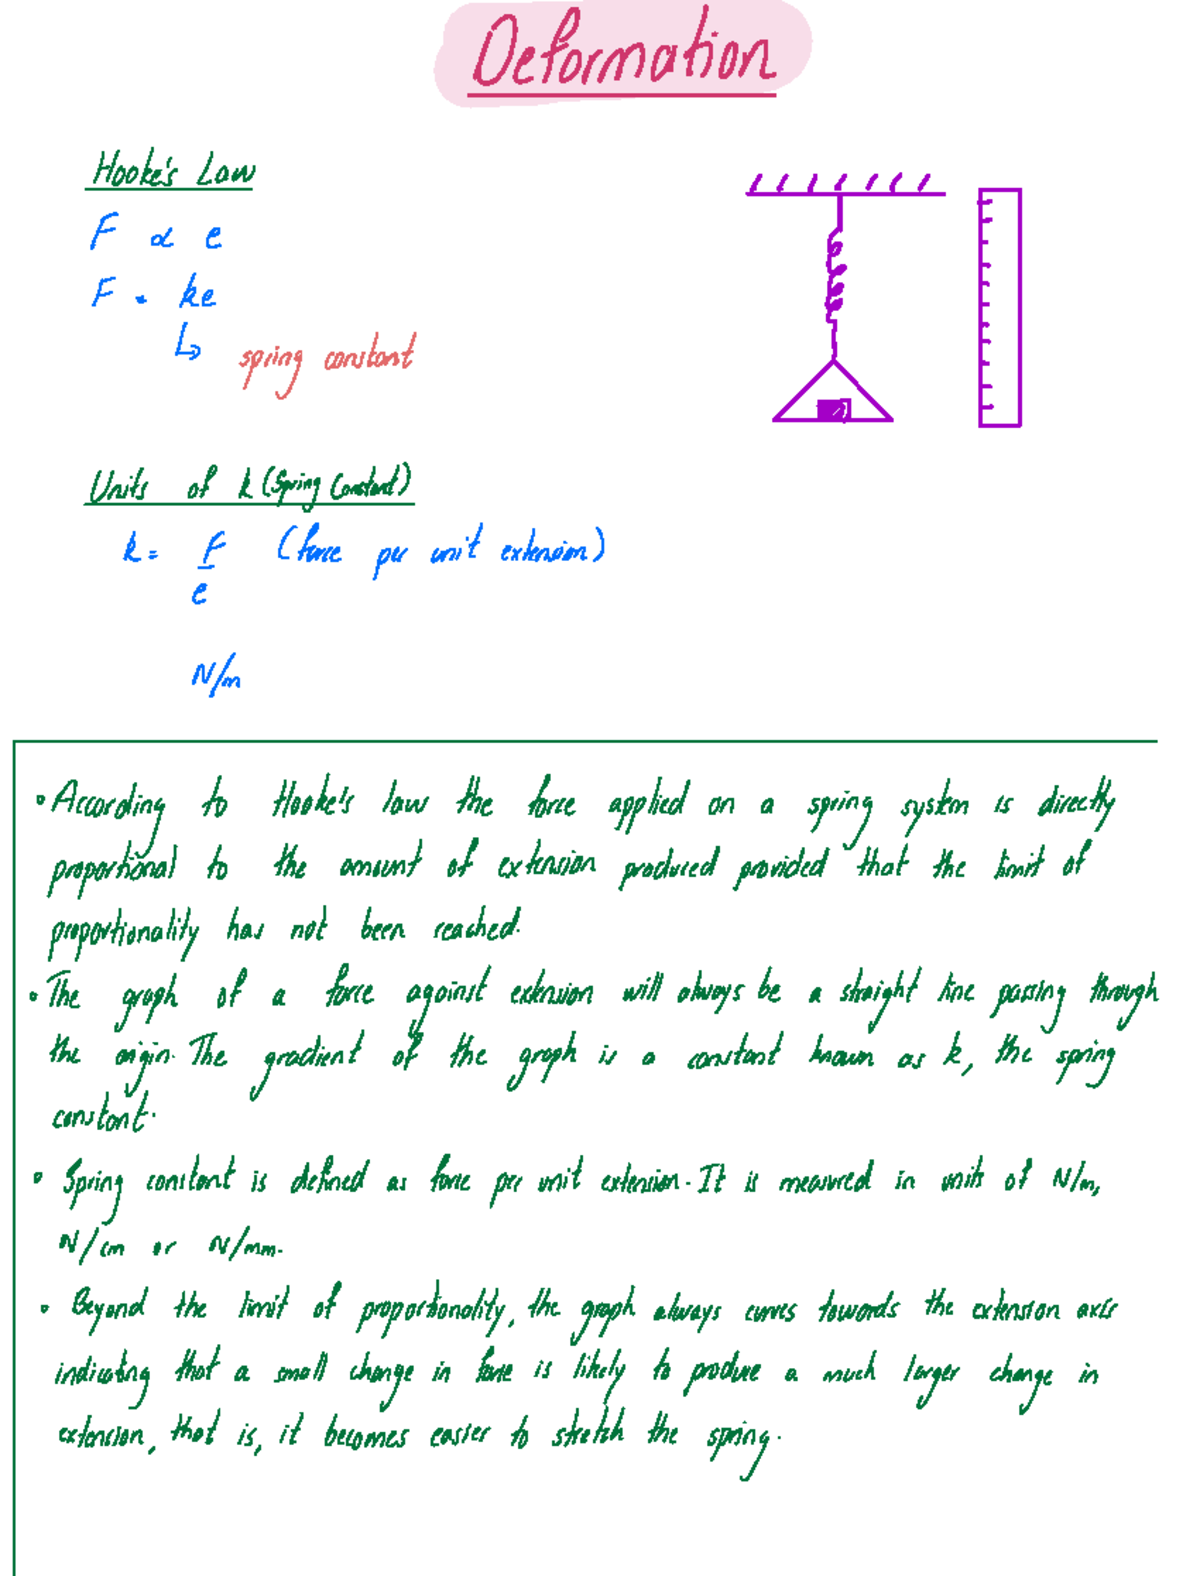 Deformation
Hooke's Law
F ∝ e
F = ke
↳ spring constant
Units of k (Spring Constant)
k = F/e (force per unit extension)
N/m
• According to Hooke's law the force applied on a spring system is directly
proportional to the amount of extension produced provided that the limit of
proportionality has not been reached.
• The graph of a force against extension will always be a straight line passing through
the origin. The gradient of the graph is a constant known as k, the spring
constant.
• Spring constant is defined as force per unit extension. It is measured in units of N/m,
N/cm or N/mm.
• Beyond the limit of proportionality, the graph always curves towards the extension axis
indicating that a small change in force is likely to produce a much larger change in
extension, that is, it becomes easier to stretch the spring.